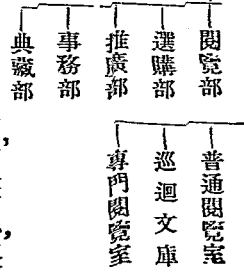 閱覽部
選購部
推廣部
事務部
典藏部
普通閱覽室
巡迴文庫
專門閱覽室